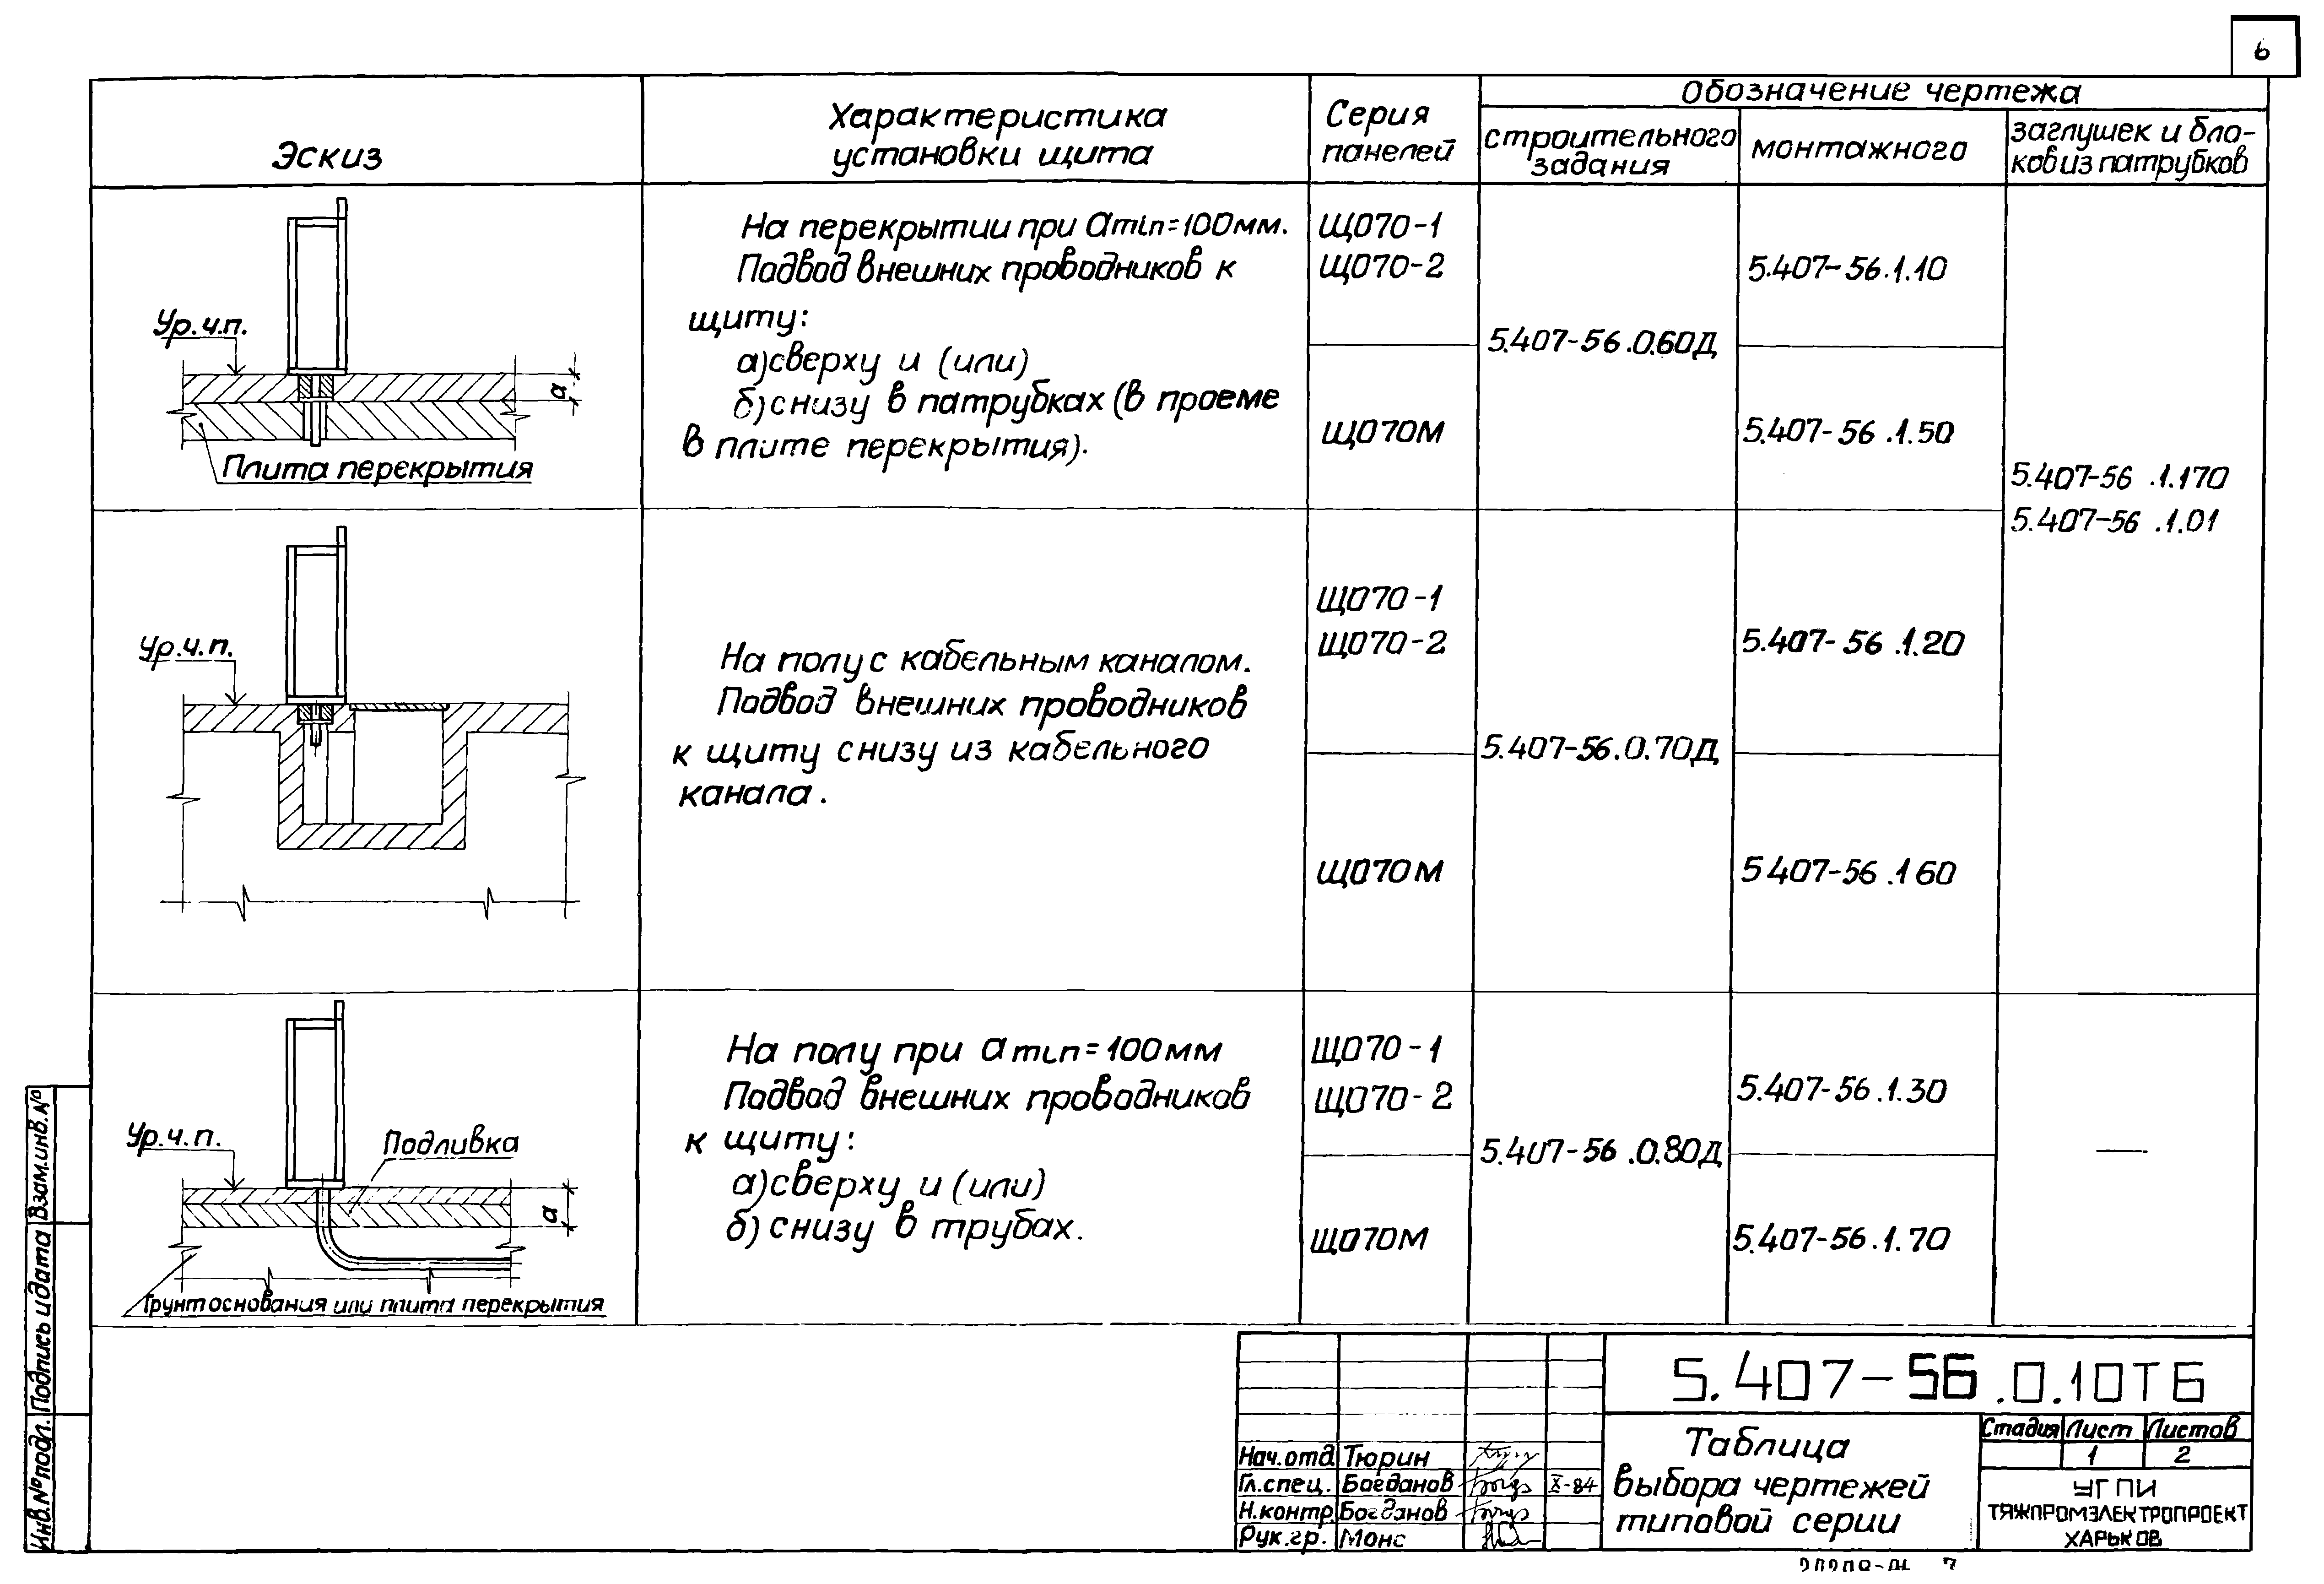 6
Эскиз
Характеристика
установки щита
Серия
панелей
Обозначение чертежа
строительного
задания
монтажного
заглушек и бло-
ков из патрубков
Ур.ч.п.
а
Плита перекрытия
На перекрытии при amin=100мм.
Подвод внешних проводников к
щиту:
а) сверху и (или)
б) снизу в патрубках (в проеме
в плите перекрытия).
ЩО70-1
ЩО70-2
ЩО70М
5.407-56.0.60Д
5.407-56.1.10
5.407-56.1.50
5.407-56.1.170
5.407-56.1.01
Ур.ч.п.
На полу с кабельным каналом.
Подвод внешних проводников
к щиту снизу из кабельного
канала.
ЩО70-1
ЩО70-2
ЩО70М
5.407-56.0.70Д
5.407-56.1.20
5 407-56.1 60
Ур.ч.п.
Подливка
а
Грунт основания или плита перекрытия
На полу при amin=100мм
Подвод внешних проводников
к щиту:
а) сверху и (или)
б) снизу в трубах.
ЩО70-1
ЩО70-2
ЩО70М
5.407-56.0.80Д
5.407-56.1.30
5.407-56.1.70
—
Инв.№ подл. Подпись и дата Взам.инв.№
5.407-56.0.10ТБ
Нач.отд Тюрин
Гл.спец. Богданов X-84
Н.контр. Богданов
Рук.гр. Монс
Таблица
выбора чертежей
типовой серии
Стадия Лист Листов
1 2
УГПИ
ТЯЖПРОМЭЛЕКТРОПРОЕКТ
ХАРЬКОВ
7